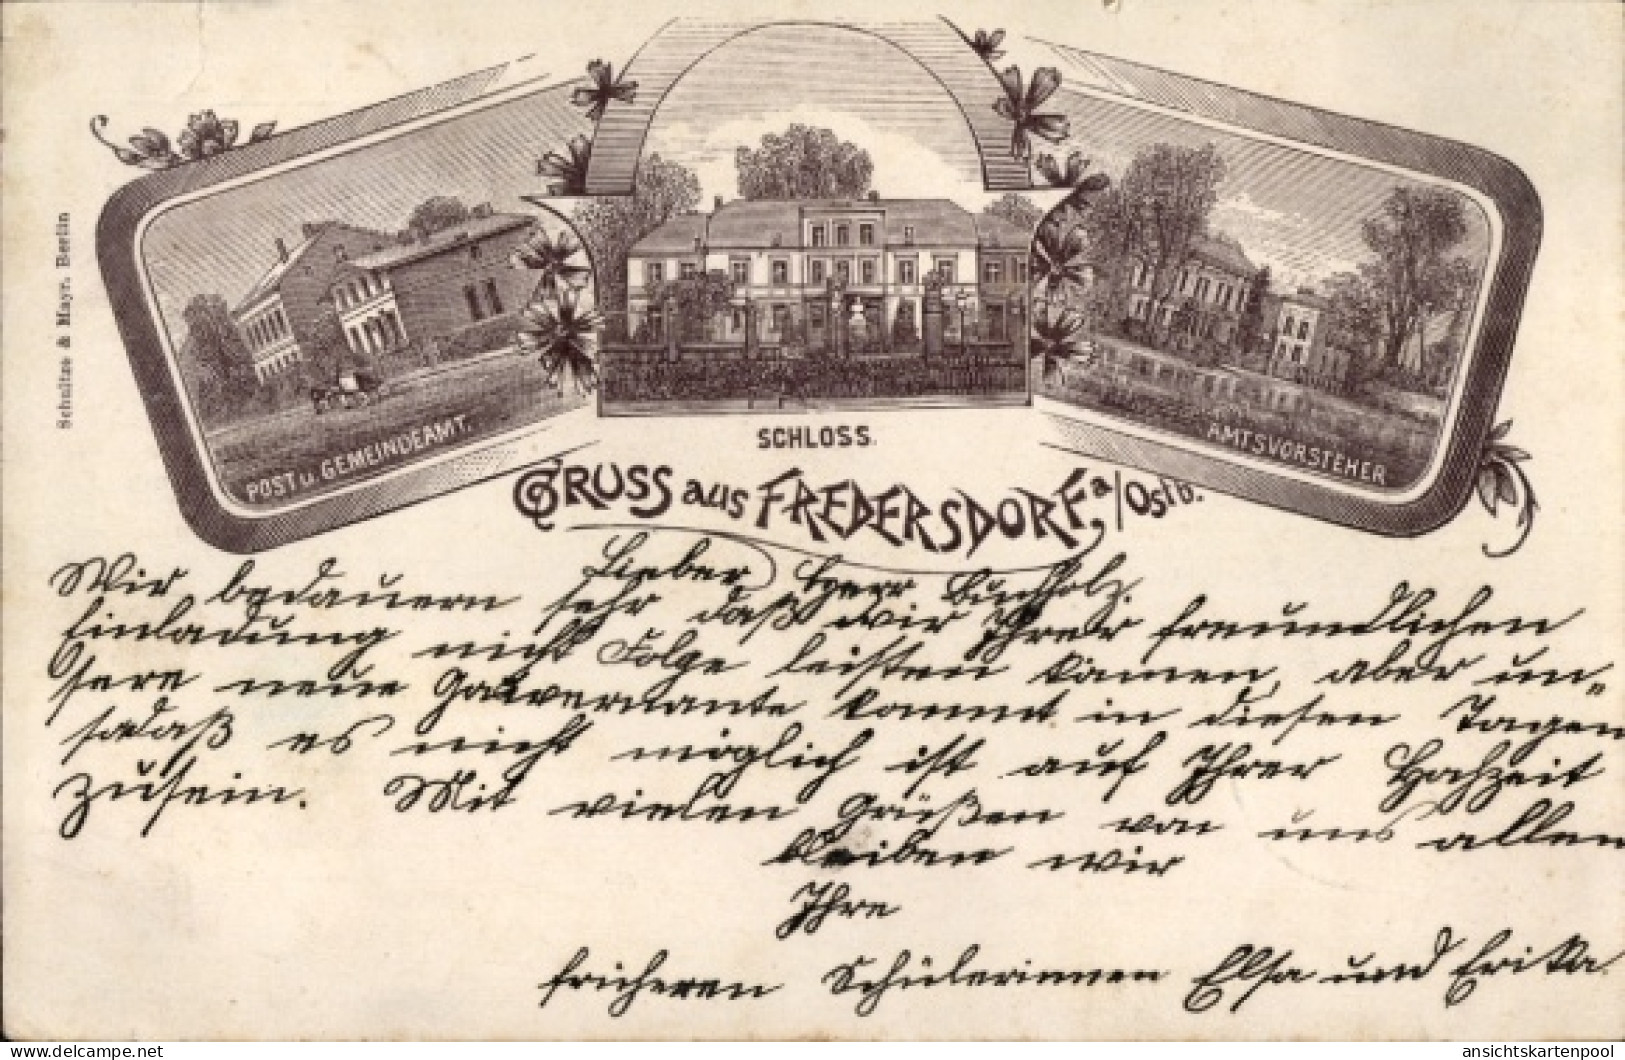 Schultze & Mayr, Berlin
POST u. GEMEINDEAMT.
SCHLOSS.
AMTSVORSTEHER
GRUSS aus FREDERSDORF, a/Ostb.
Lieber Herr Buchholz.
Wir bedauern sehr daß wir Ihrer freundlichen
Einladung nicht Folge leisten können, aber un-
sere neue Gouvernante kommt in diesen Tagen
sodaß es nicht möglich ist auf Ihrer Hochzeit
zusein. Mit vielen Grüßen von uns allen
bleiben wir
Ihre
früheren Schülerinnen Elsa und Erika.
delcampe.net
ansichtskartenpool